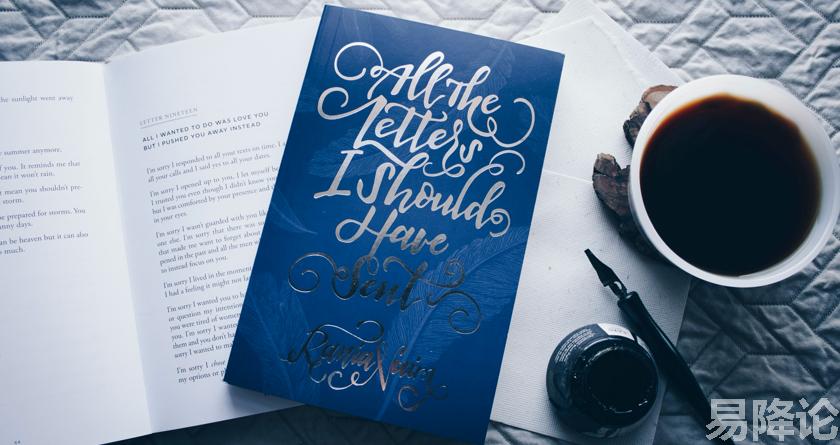 the sunlight went away
summer anymore.
f you. It reminds me that
ean it won't rain.
t mean you shouldn't pre-
storms.
be prepared for storms. You
unny days.
an be heaven but it can also
s much.
64
LETTER NINETEEN
ALL I WANTED TO DO WAS LOVE YOU
BUT I PUSHED YOU AWAY INSTEAD
I'm sorry I responded to all your texts on time. I
all your calls and I said yes to all your dates.
I'm sorry I opened up to you, I let myself be
I trusted you even though I didn't know you
but I was comforted by your presence and th
in your eyes.
I'm sorry I wasn't guarded with you lik
one else. I'm sorry that there was so
that made me want to forget about
pened in the past and all the men w
to instead focus on you.
I'm sorry I lived in the momen
I had a feeling it might not las
I'm sorry I wanted you to b
or question my intention
you were tired of wome
them and you don't ha
sorry I wanted to ma
I'm sorry I chose
my options or p
All The
Letters
I Should
Have
Sent
Rania Naim
易降论